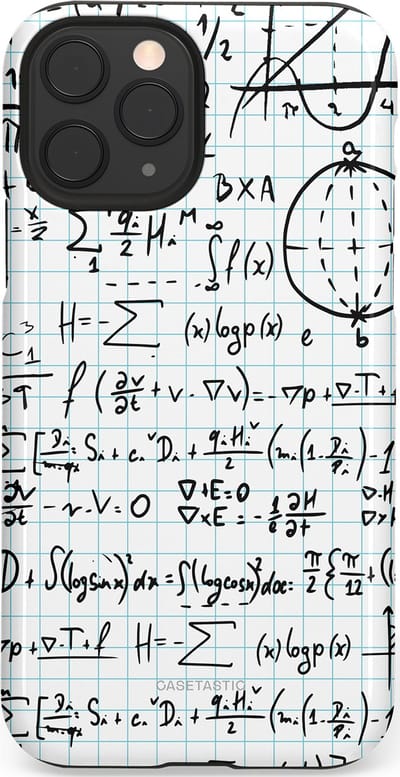 1/2
π 2 4
a
B×A
= x/2 ∑ 1 qᵢ/2 Hᵢᴹ
∫ ∞ ∞ f(x)
b
H=-∑ (x)logp(x) e
C₁³
f(∂v/∂t+v·∇v)=-∇p+∇·T+
∑[Dᵢ/mᵢqₓ:Sᵢ+cᵢᵛDᵢ+qᵢHᵢᵛ/2(mᵢ(1-Dᵢ/Pᵢ)-1
∂v/∂t-v·V=0 ∇+E=0 ∇·H
∇×E=-1/e ∂H/∂t ∇×H
D+∫(logsinx)²dx=∫(logcosx)²dx=π/2{π/12+(
∇p+∇·T+f H=-∑ (x)logp(x)
CASETASTIC
∑[Dᵢ:Sᵢ+cᵢᵛDᵢ+qᵢHᵢᵛ(mᵢ(1-Dᵢ)-1